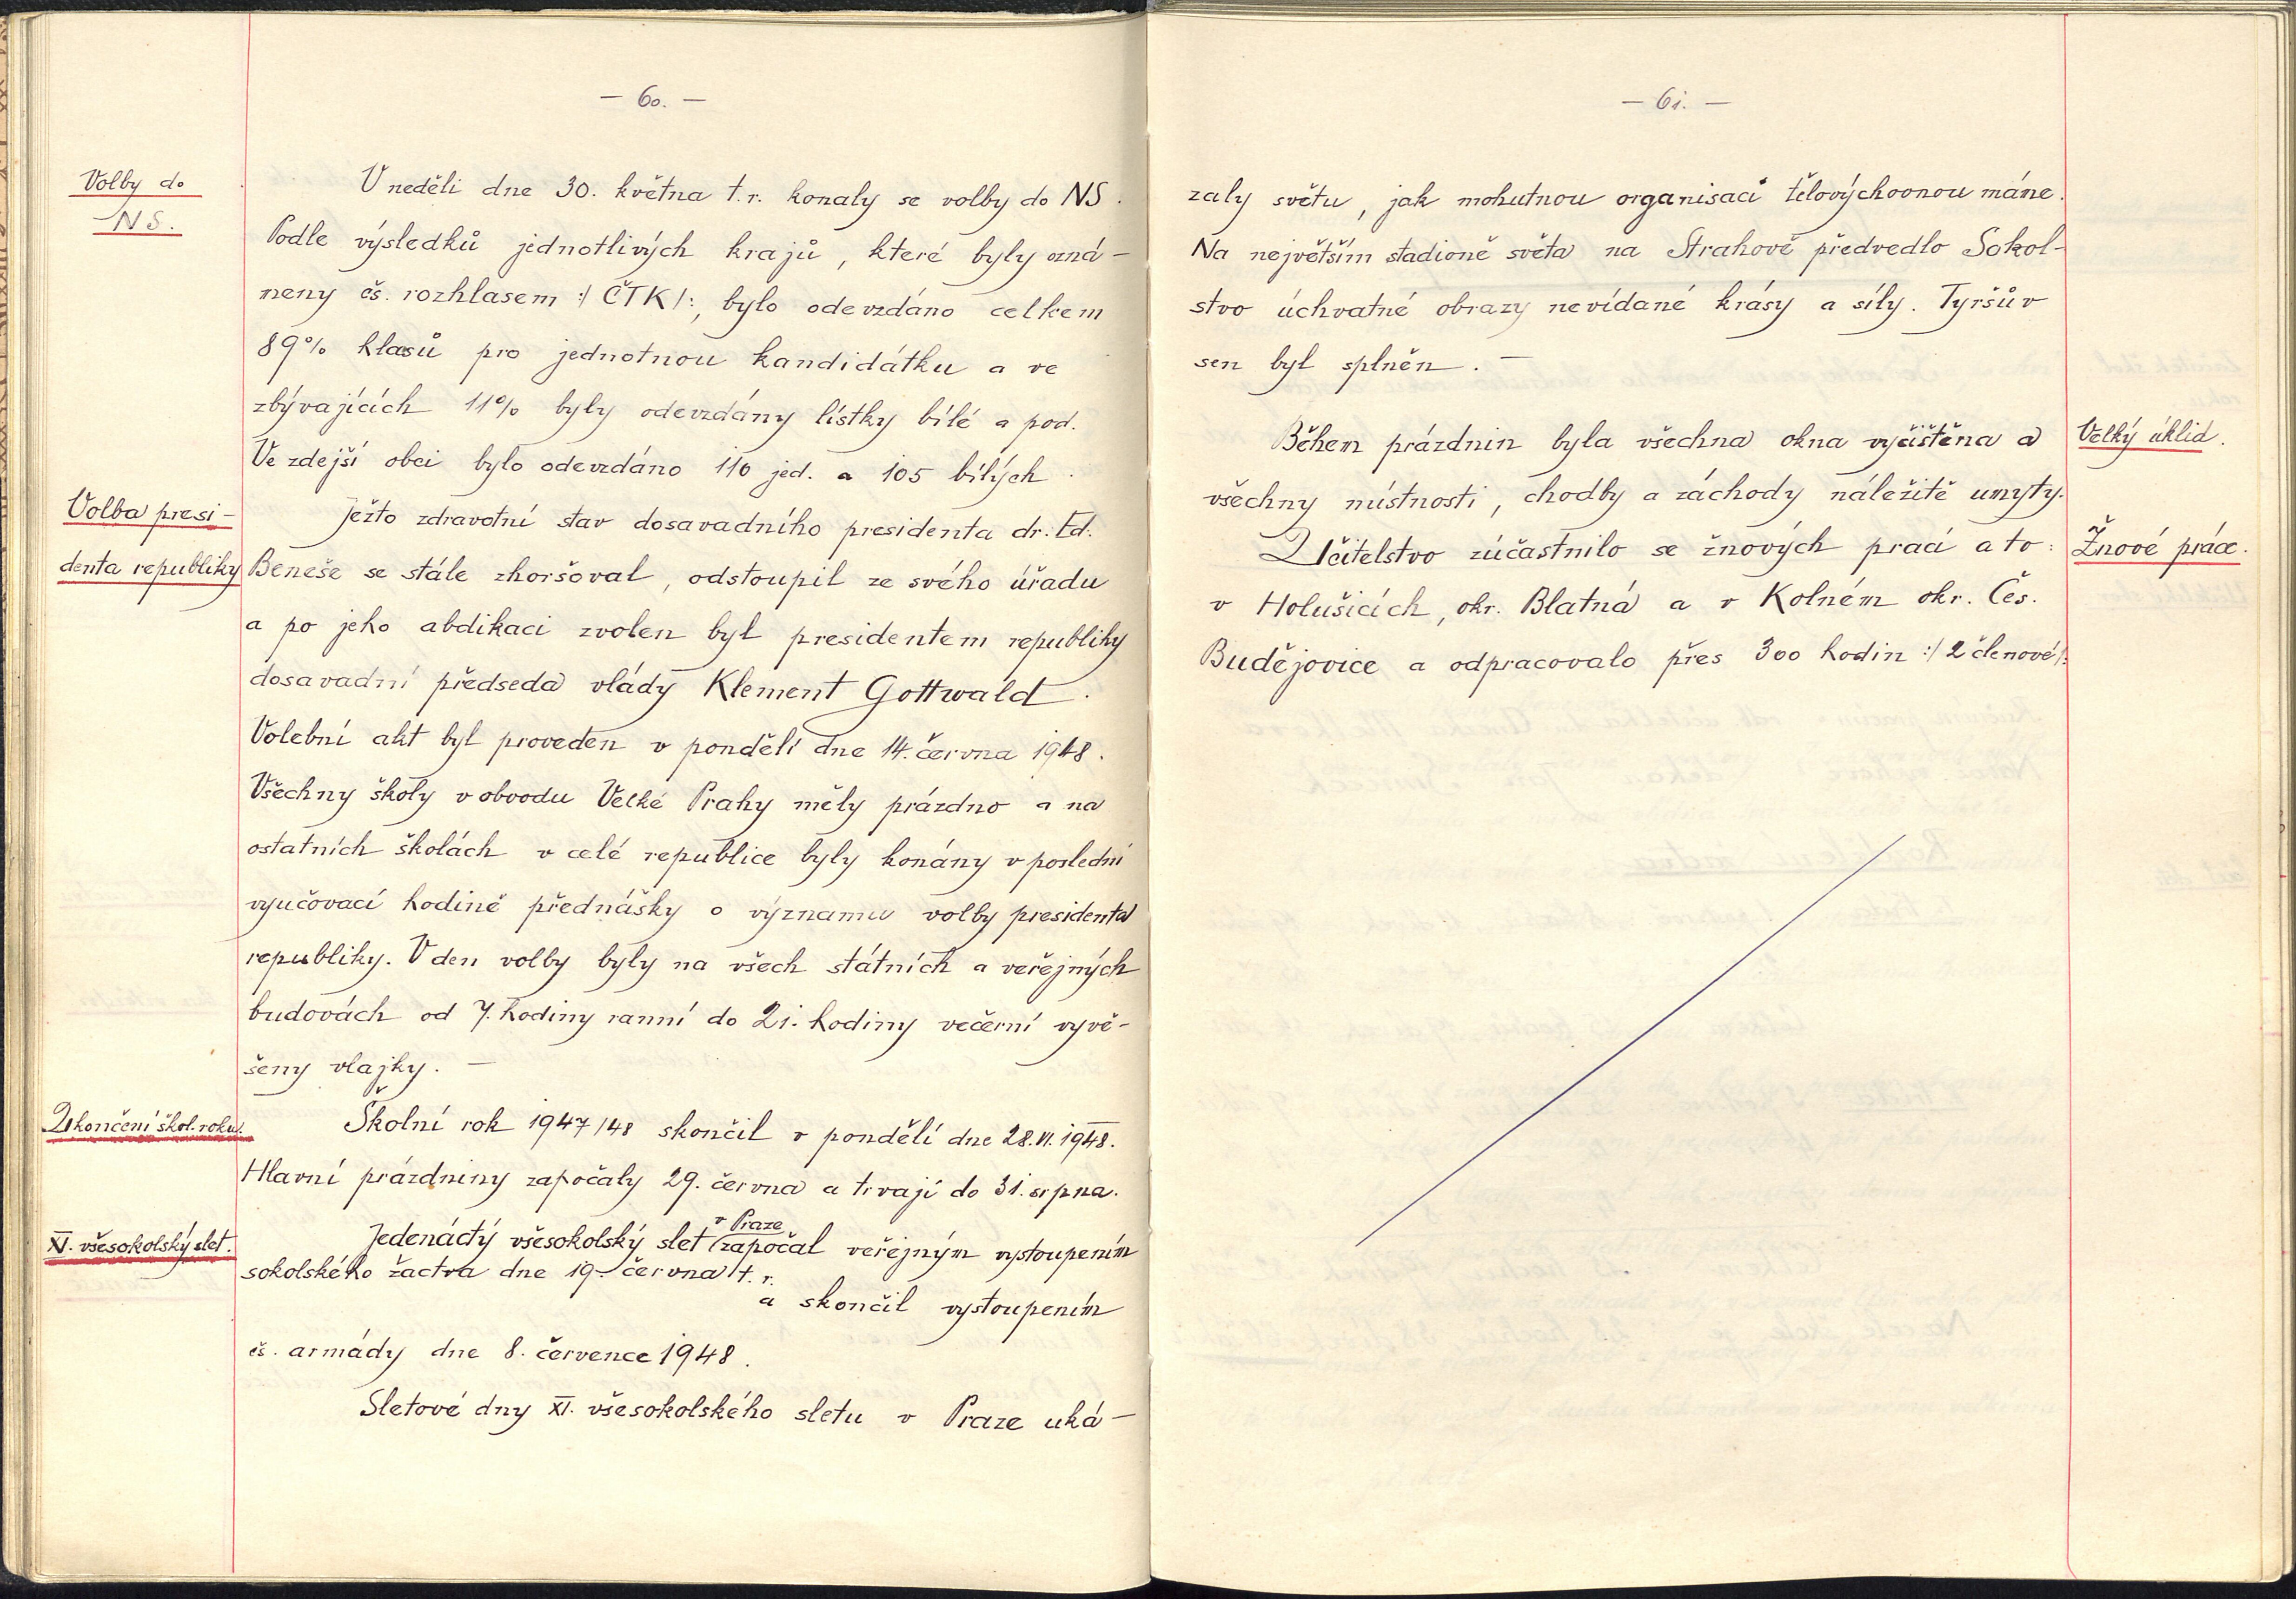 — 60. —
Volby do
NS.
V neděli dne 30. května t.r. konaly se volby do NS.
Podle výsledků jednotlivých krajů, které byly ozná-
meny čs. rozhlasem :/ ČTK /:, bylo odevzdáno celkem
89% hlasů pro jednotnou kandidátku a ve
zbývajících 11% byly odevzdány lístky bílé a pod.
Ve zdejší obci bylo odevzdáno 110 jed. a 105 bílých.
Volba presi-
denta republiky
Ježto zdravotní stav dosavadního presidenta dr. Ed.
Beneše se stále zhoršoval, odstoupil ze svého úřadu
a po jeho abdikaci zvolen byl presidentem republiky
dosavadní předseda vlády Klement Gottwald.
Volební akt byl proveden v pondělí dne 14. června 1948.
Všechny školy v obvodu Velké Prahy měly prázdno a na
ostatních školách v celé republice byly konány v poslední
vyučovací hodině přednášky o významu volby presidenta
republiky. V den volby byly na všech státních a veřejných
budovách od 7. hodiny ranní do 21. hodiny večerní vyvě-
šeny vlajky. —
Ukončení škol. roku.
Školní rok 1947/48 skončil v pondělí dne 28. VI. 1948.
Hlavní prázdniny započaly 29. června a trvají do 31. srpna.
XI. všesokolský slet.
v Praze
Jedenáctý všesokolský slet započal veřejným vystoupením
sokolského žactva dne 19. června t. r.
a skončil vystoupením
čs. armády dne 8. července 1948.
Sletové dny XI. všesokolského sletu v Praze uká-
— 61. —
zaly světu, jak mohutnou organisaci tělovýchovnou máme.
Na největším stadioně světa na Strahově předvedlo Sokol-
stvo úchvatné obrazy nevídané krásy a síly. Tyršův
sen byl splněn. —
Velký úklid.
Během prázdnin byla všechna okna vyčištěna a
všechny místnosti, chodby a záchody náležitě umyty.
Žnové práce.
Učitelstvo zúčastnilo se žnových prací a to:
v Holušicích, okr. Blatná a v Kolném okr. Čes.
Budějovice a odpracovalo přes 300 hodin :/ 2 členové /: